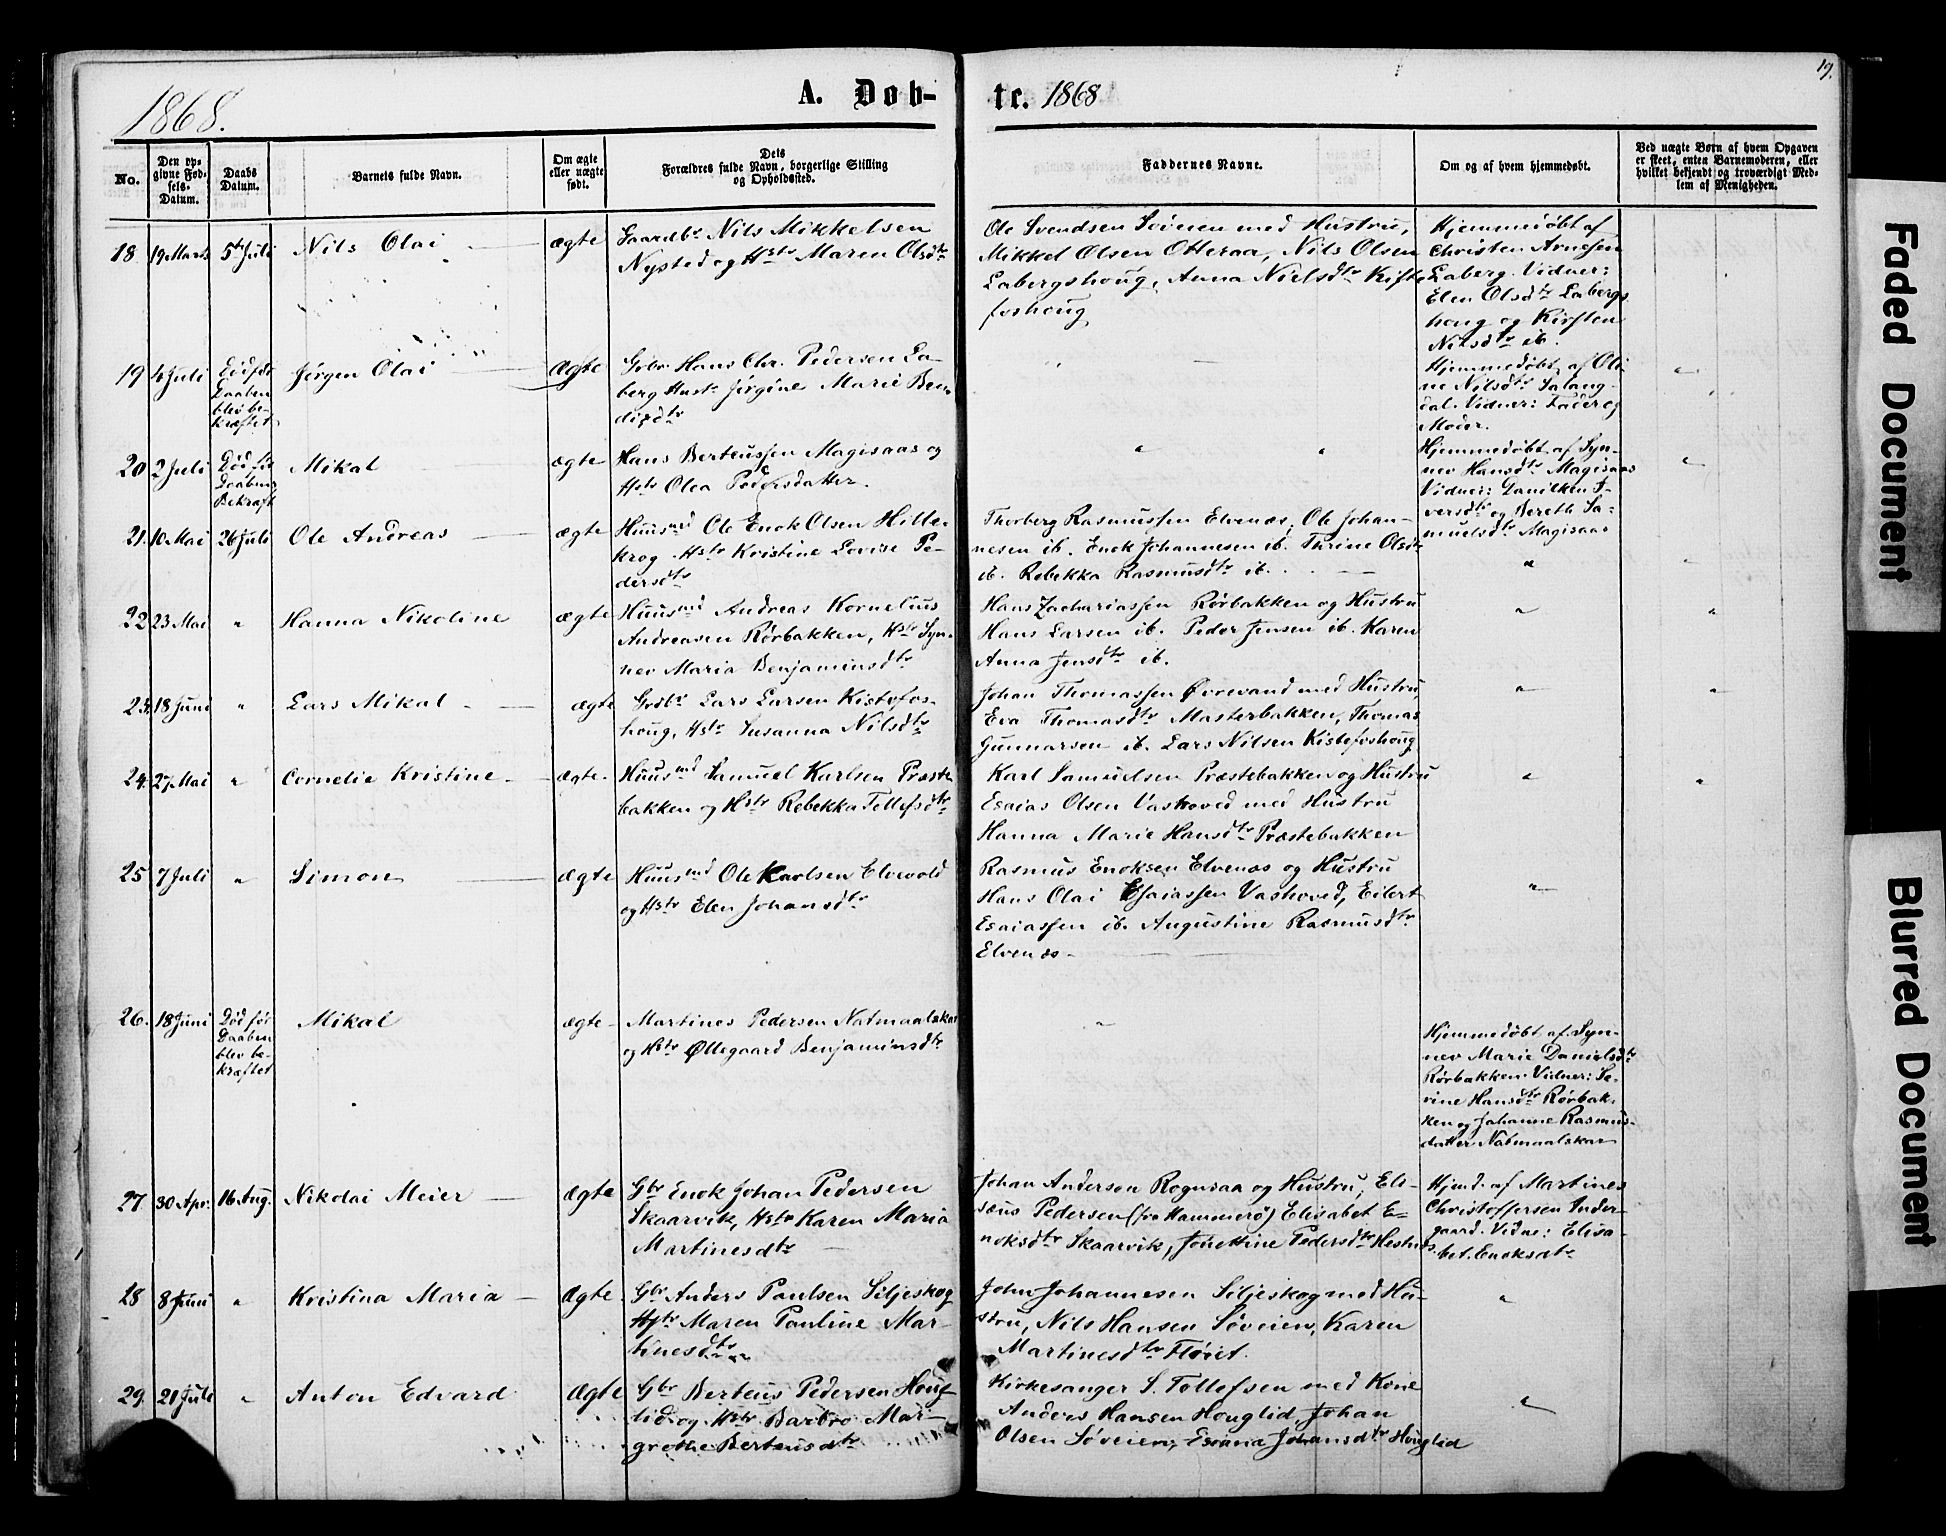 1868.
A. Døb-
te. 1868
19.
No.
Den op-
givne Fød-
sels-
Datum.
Daabs
Datum.
Barnets fulde Navn.
Om ægte
eller uægte
født.
Dets
Forældres fulde Navn, borgerlige Stilling
og Opholdssted.
Faddernes Navne.
Om og af hvem hjemmedøbt.
Ved uægte Børn af hvem Opgaven
er skeet, enten Barnemoderen, eller
hvilket bekjendt og troværdigt Med-
lem af Menigheden.
18 19 Marts 5te Juli Nils Olai ægte
Gaardbr Nils Mikkelsen
Nysted og Hstr Maren Olsdtr
Ole Svendsen Søveien med Hustru,
Mikkel Olsen Otteraa, Nils Olsen
Labergshoug, Anna Nielsdtr Kiste
foshoug
Hjemmedøbt af
Christen Arnesen
Laberg. Vidner:
Elen Olsdtr Labergs
houg og Kirsten
Nilsdtr ib.
19 4 Juli Død før
Daaben
blev be-
kræftet
Jørgen Olai Ægte
Gbr. Hans Chr. Pedersen La-
berg Hust. Jørgine Marie Ben-
dixdtr
Hjemmedøbt af Oli
ne Nilsdtr Salang-
dal. Vidner: Fader og
Moder.
20 2 Juli Død før
Daabens
Bekræft
Mikal ægte
Hans Berteussen Magisaas og
Hstr Olea Pedersdatter.
Hjemmedøbt af Syn-
nev Hansdtr Magisaas
Vidner: Danilken I-
versdtr og Bereth Sa-
muelsdtr Magisaas
21. 10 Mai 26 Juli Ole Andreas ægte
Huusmd Ole Enok Olsen Hille-
krog Hstr Kristine Lovise Pe-
dersdtr
Thorberg Rasmussen Elvenæs, Ole Johan-
nesen ib. Enok Johannesen ib. Thrine Olsdtr
ib. Rebekka Rasmusdtr ib.
"
22 23 Mai " Hanna Nikoline ægte
Huusmd Andreas Kornelius
Andreasen Rørbakken, Hstr Syn-
nev Maria Benjaminsdtr
Hans Zachariassen Rørbakken og Hustru
Hans Larsen ib. Peder Jensen ib. Karen
Anna Jensdtr ib.
" "
23. 18 Juni " Lars Mikal ægte
Grdbr Lars Larsen Kistefos-
houg, Hstr Susanna Nilsdtr
Johan Thomassen Øvrevand med Hustru
Eva Thomasdtr Masterbakken, Thomas
Gunnarsen ib. Lars Nilsen Kistefoshoug
" "
24. 27 Mai " Cornelie Kristine ægte
Huusmd Samuel Karlsen Præste
bakken og Hstr Rebekka Tollefsdtr
Karl Samuelsen Præstebakken og Hustru
Esaias Olsen Vashoved med Hustru
Hanna Marie Hansdtr Præstebakken
" "
25 7 Juli " Simon ægte
Huusmd Ole Karlsen Elvevold
og Hstr Elen Johansdtr
Rasmus Enoksen Elvenæs og Hustru
Hans Olai Esaiassen Vashoved, Eilert
Esaiassen ib. Augustine Rasmusdtr
Elvenæs
"
26. 18 Juni Død før
Daaben
blev be-
kræftet
Mikal ægte
Martines Pedersen Natmaalskar
og Hstr Ollegaard Benjaminsdtr
"
Hjemmedøbt af Syn-
nev Marie Danielsdtr
Rørbakken. Vidner: Se-
rine Hansdtr Rørbak-
ken og Johanne Rasmus-
datter Natmaalskar
27 30 Apr. 16 Aug. Nikolai Meier ægte
Gbr Enok Johan Pedersen
Skaarvik, Hstr Karen Maria
Martinesdtr
Johan Andersen Rognsaa og Hustru, Eli-
sæus Pedersen (fra Hammerø) Elisabet E-
noksdtr Skaarvik, Jonettine Pedersdtr Hestnes
Hjmd. af Martines
Christoffersen Inder-
gaard. Vidne: Elisa-
bet Enoksdtr
28 8 Juni " Kristina Maria Ægte
Gbr Anders Paulsen Siljeskog
Hstr Maren Pauline Mar-
tinesdtr
John Johannesen Siljeskog med Hu-
stru, Nils Hansen Søveien, Karen
Martinesdtr Fløiet.
"
29. 21 Juli " Anton Edvard Ægte
Gbr Berteus Pedersen Houg
lid og Hstr Barbro Mar-
grethe Berteusdtr
Kirkesanger S. Tollefsen med Kone
Anders Hansen Houglid, Johan
Olsen Søveien, Esiana Johansdtr Houglid
"
Faded Document
Blurred Document